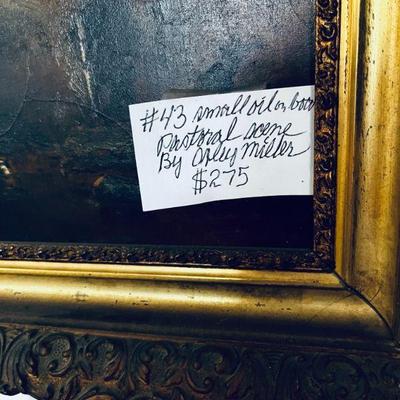 #43 small oil on boa
Pastoral scene
By Miller
$275